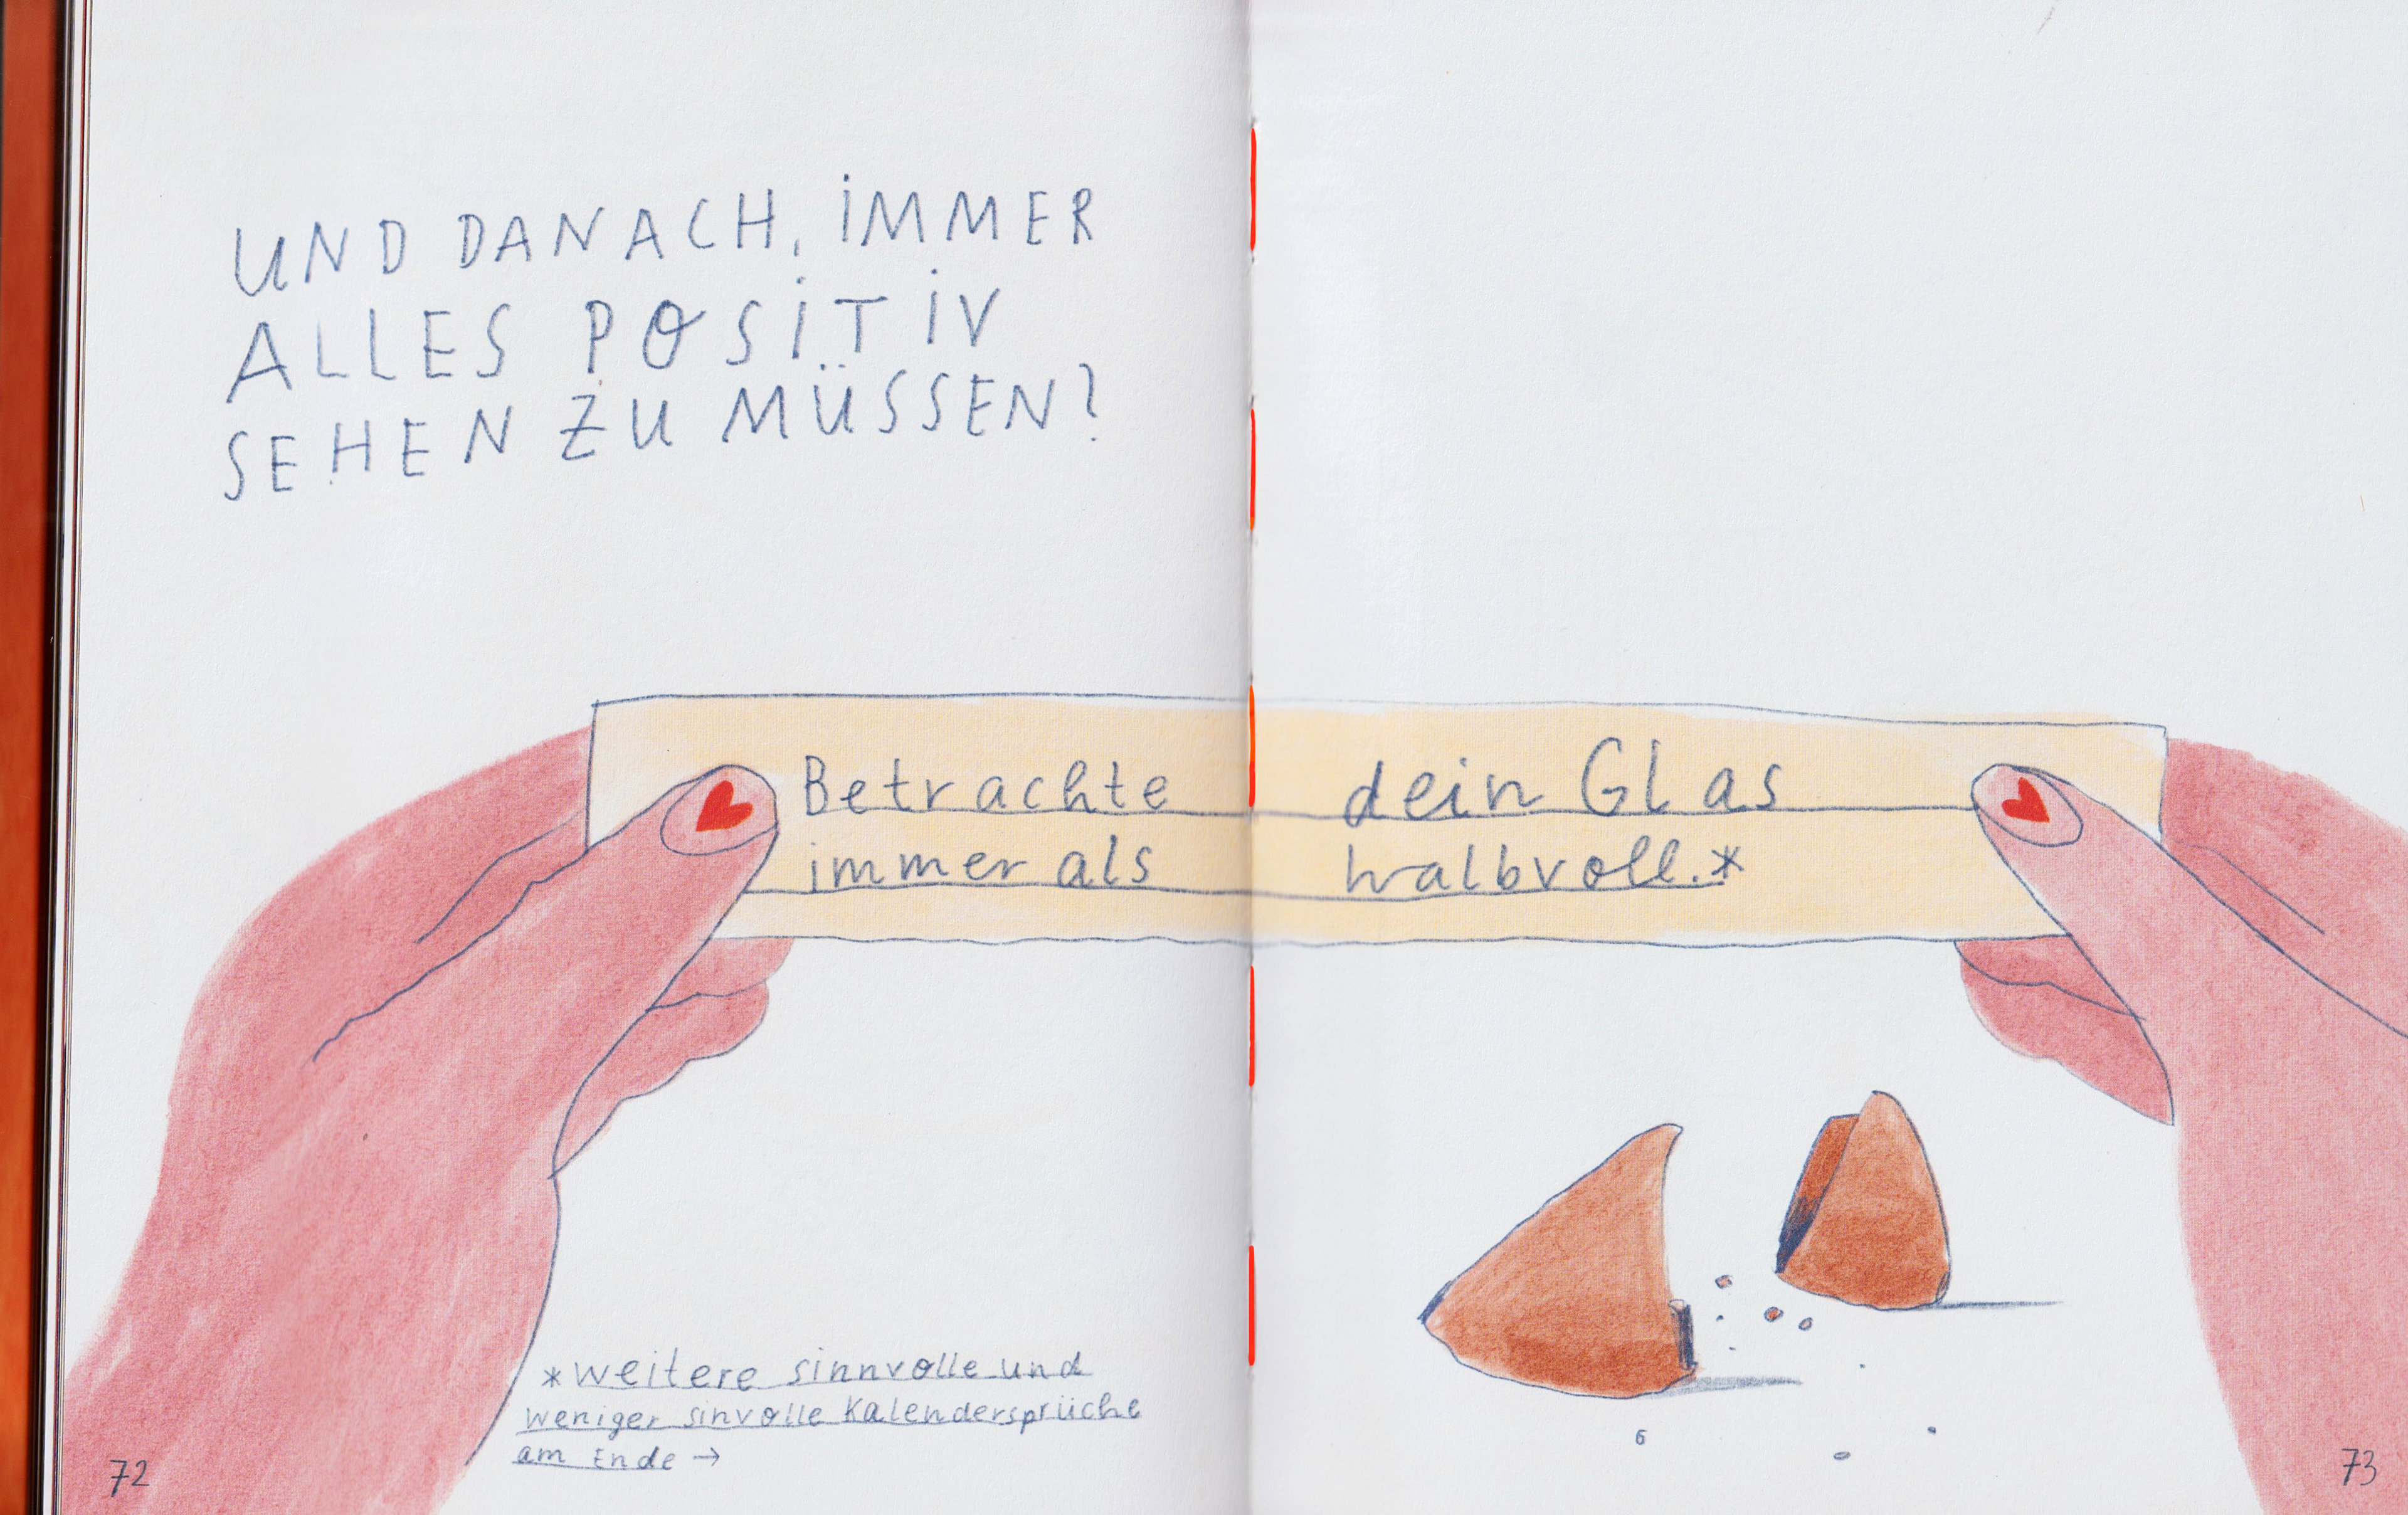 UND DANACH, IMMER
ALLES POSITIV
SEHEN ZU MÜSSEN?
Betrachte dein Glas
immer als halbvoll.*
*weitere sinnvolle und
weniger sinvolle Kalendersprüche
am Ende →
72
73